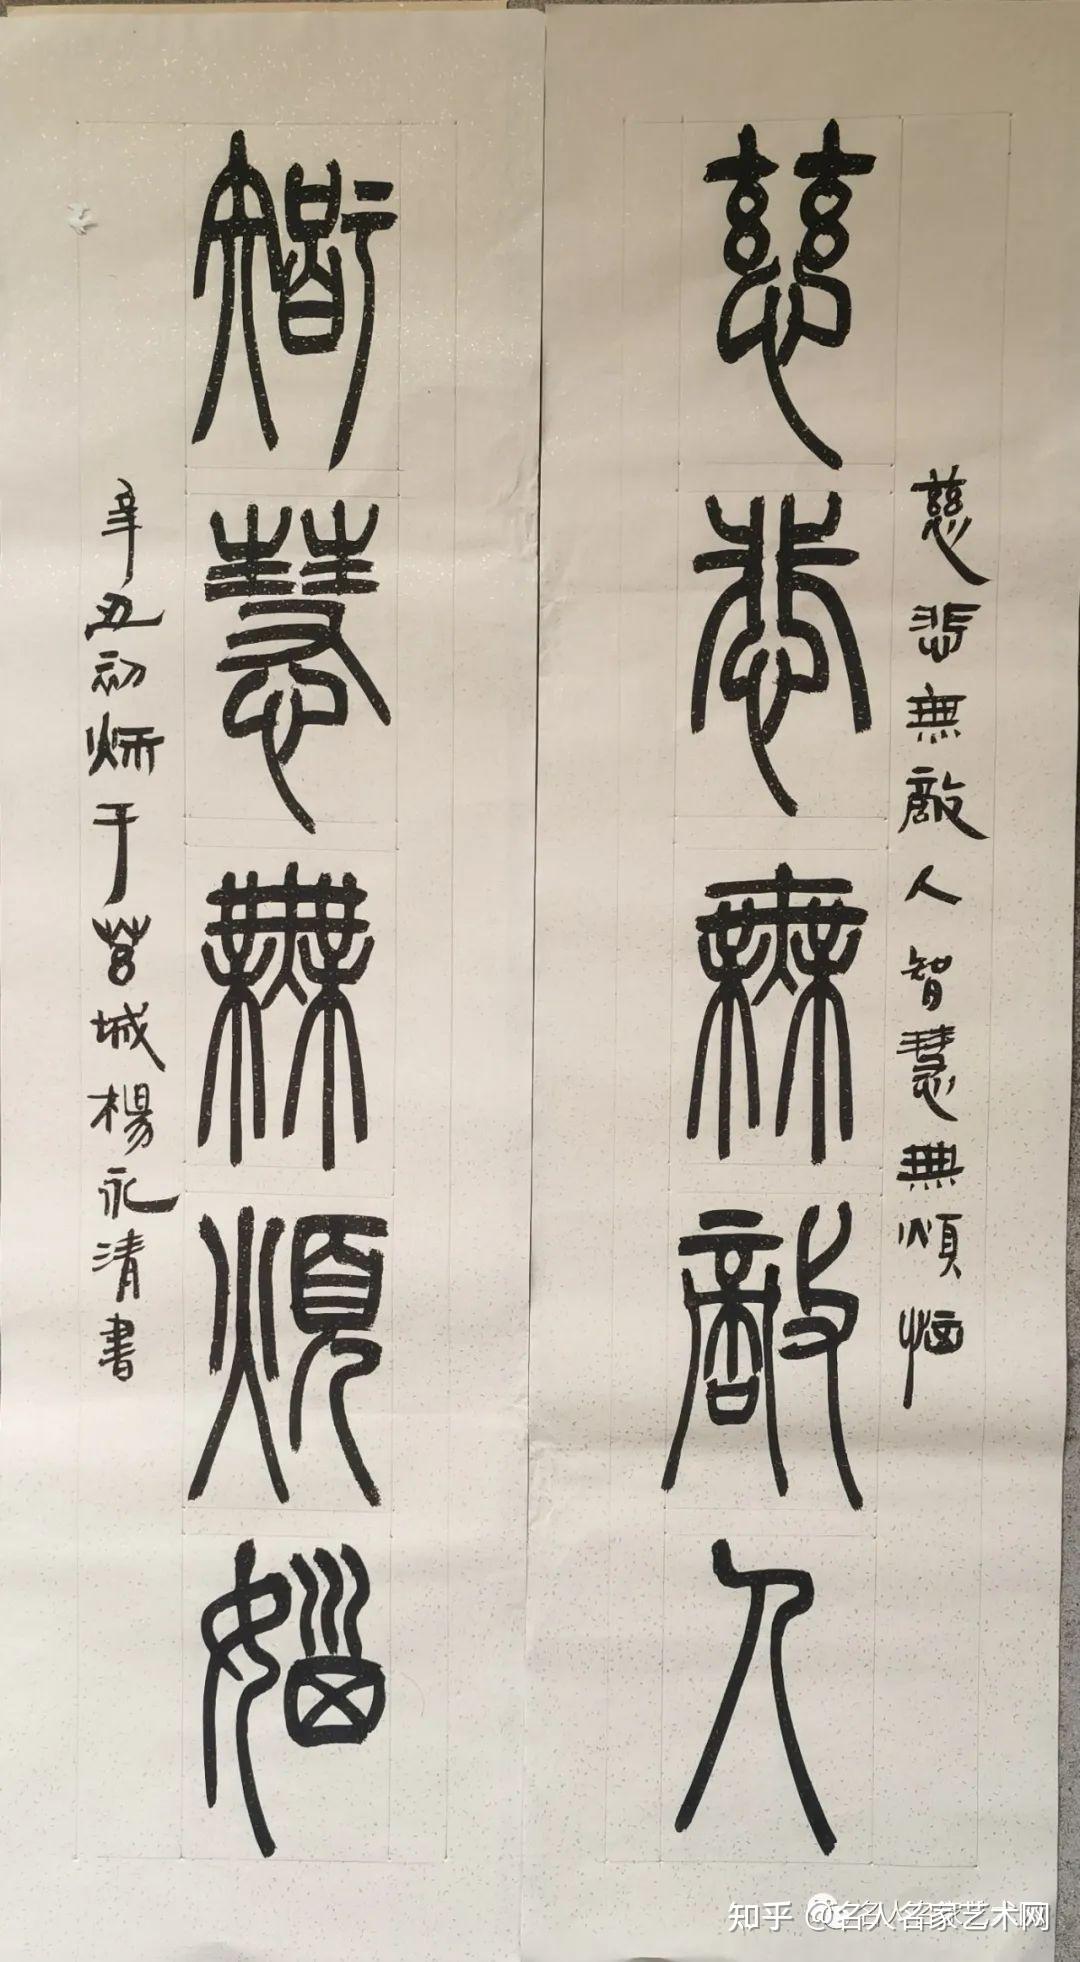 慈悲無敵人
慈悲無敵人智慧無煩惱
智慧無煩惱
辛丑初炳于莒城楊永清書
知乎 @名人名家艺术网